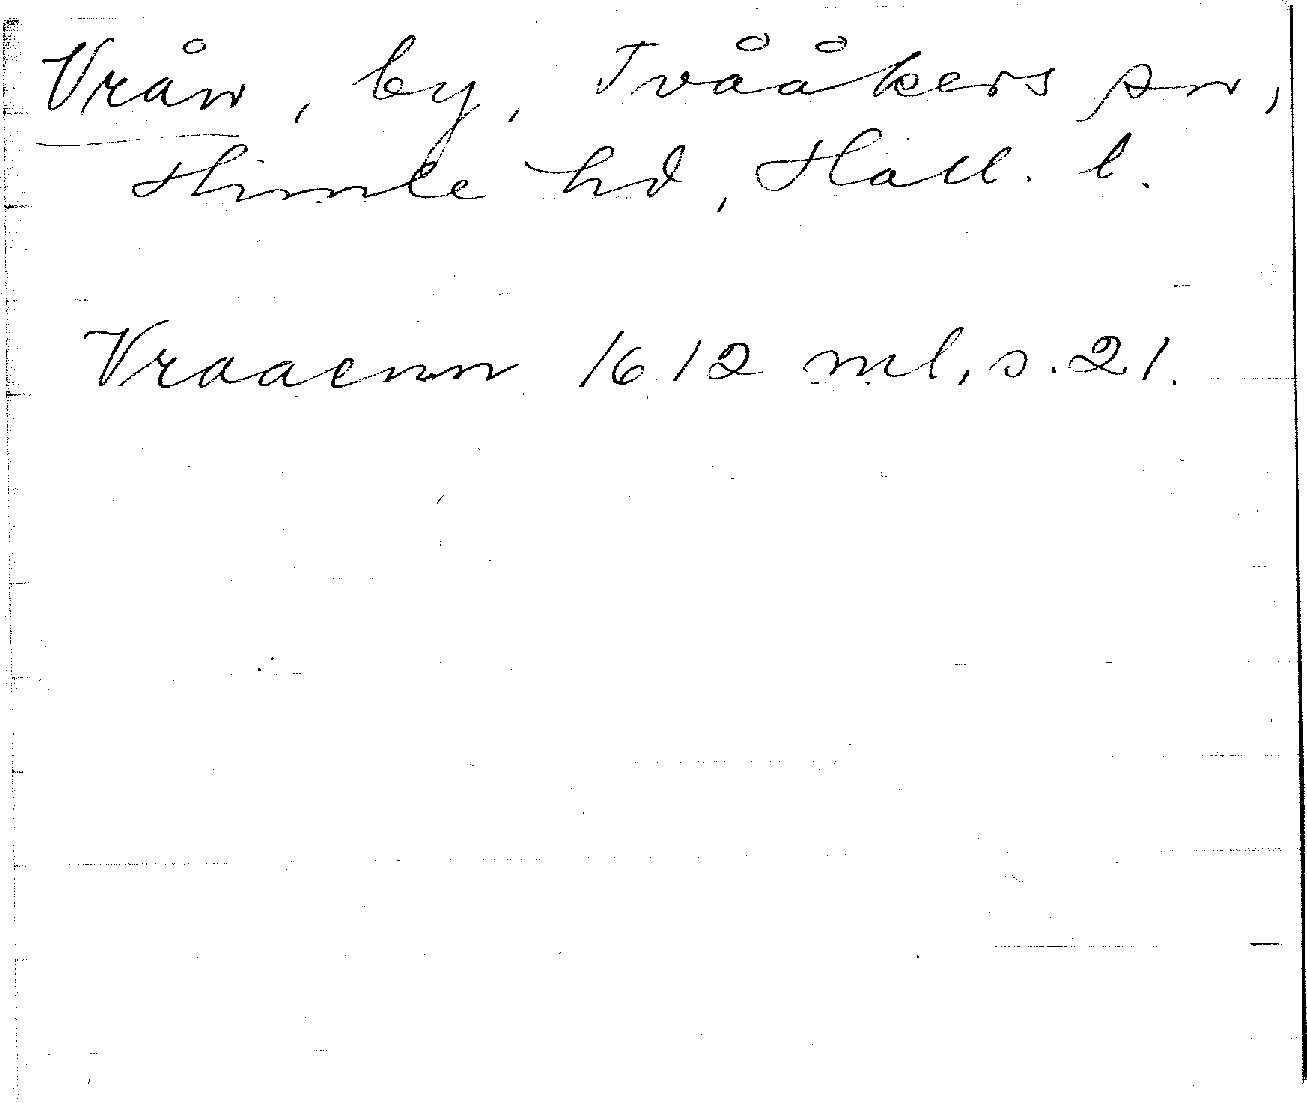 Vrån, by, Tvååkers sn,
Himle hd, Hall. l.
Vraaenn 1612 ml, s. 21.